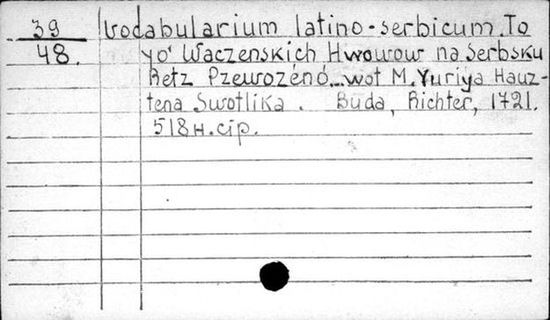 39 Vodabularium latino-serbicum. To
48. yo' Waczenskich Hwowow na Serbsku
Retz Pzewozénó,..wot M. Yuriya Hauz-
tena Swotlika. Buda, Richter, 1721.
518н. стр.